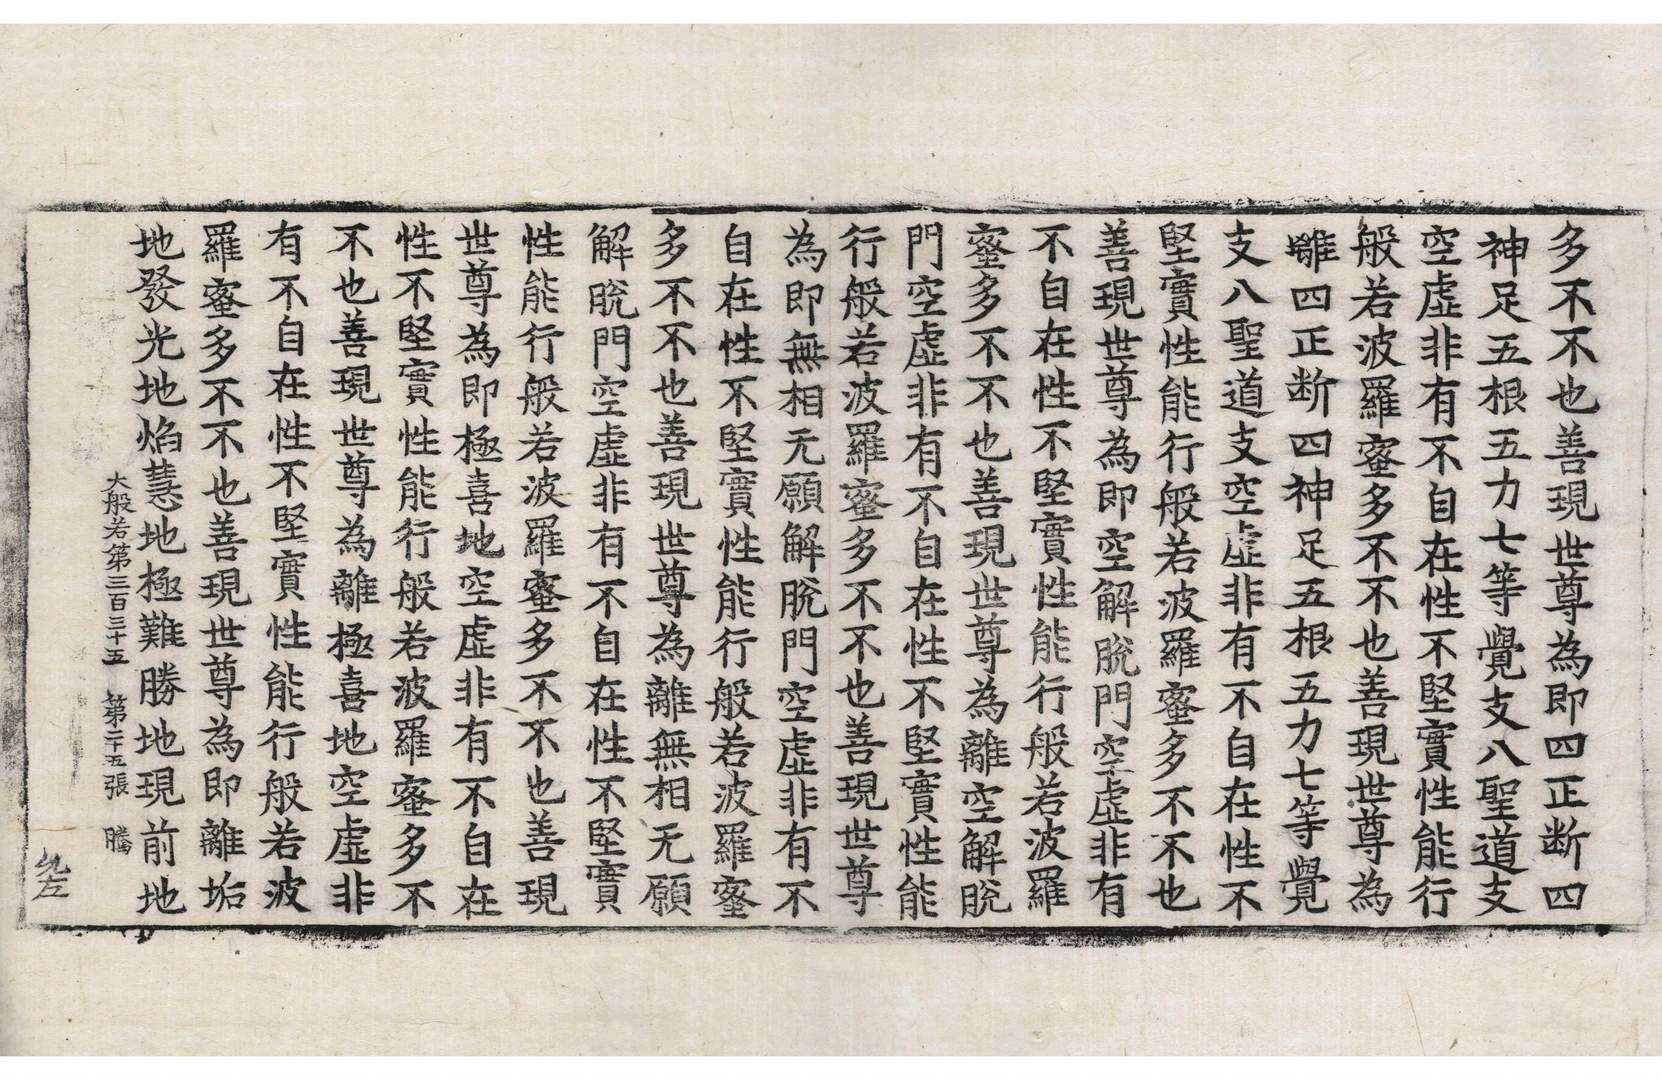 多不不也善現世尊為即四正断四
神足五根五力七等覺支八聖道支
空虛非有不自在性不堅實性能行
般若波羅蜜多不不也善現世尊為
離四正断四神足五根五力七等覺
支八聖道支空虛非有不自在性不
堅實性能行般若波羅蜜多不不也
善現世尊為即空解脫門空虛非有
不自在性不堅實性能行般若波羅
蜜多不不也善現世尊為離空解脫
門空虛非有不自在性不堅實性能
行般若波羅蜜多不不也善現世尊
為即無相无願解脫門空虛非有不
自在性不堅實性能行般若波羅蜜
多不不也善現世尊為離無相无願
解脫門空虛非有不自在性不堅實
性能行般若波羅蜜多不不也善現
世尊為即極喜地空虛非有不自在
性不堅實性能行般若波羅蜜多不
不也善現世尊為離極喜地空虛非
有不自在性不堅實性能行般若波
羅蜜多不不也善現世尊為即離垢
地發光地焰慧地極難勝地現前地
大般若第三百三十五　第二十五張　騰